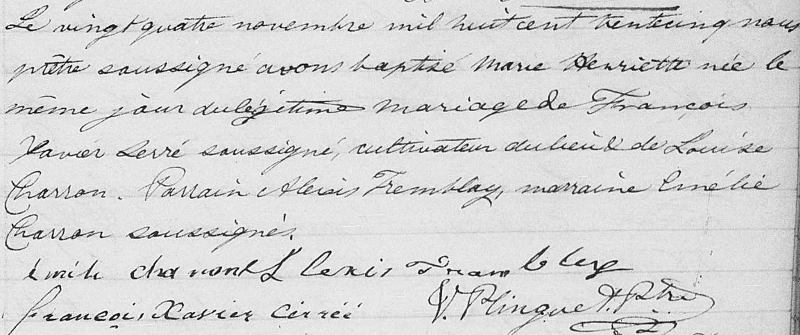 Le vingt quatre novembre mil huit cent trente cinq nous
prêtre soussigné avons baptisé Marie Henriette née le
même jour du légitime mariage de François
Xavier Serré soussigné, cultivateur du lieu & de Louise
Charron. Parrain Alexis Tremblay, marraine Emélie
Charron soussignés.
emile charront Alexis Tramblay
françois Xavier cerréé V. Plinguet, Ptre